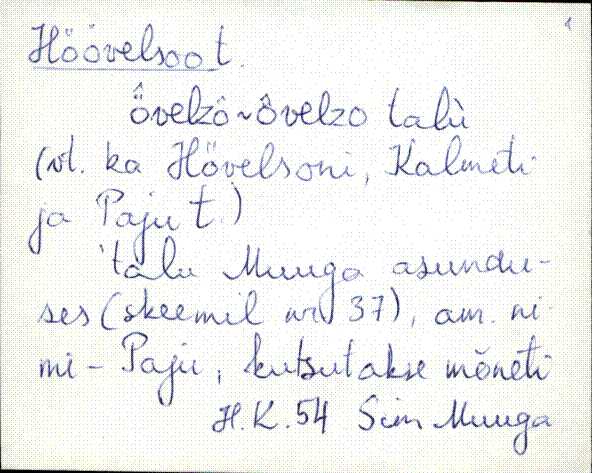 Höövelsoo t.
ȫ̂velzô ~ ȫ̂velzo talù
(vt. ka Hövelsoni, Kalmeti
ja Paju t.)
talu Muuga asundu-
ses (skeemil nr. 37), am. ni-
mi - Paju, kutsutakse mõneti
H.K. 54 Sim Muuga